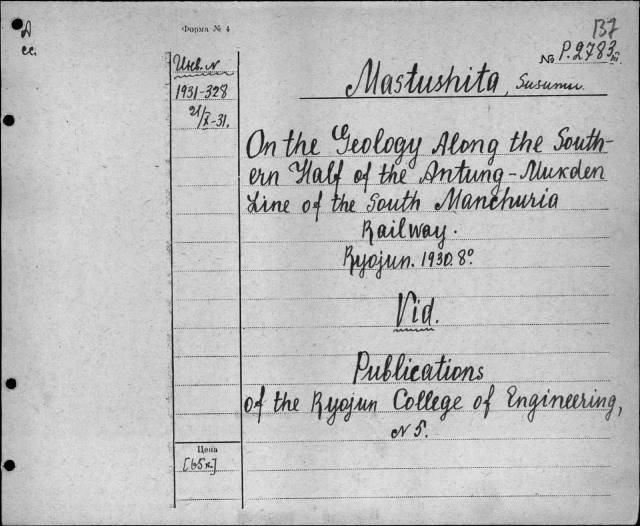 Форма № 4
137
№ P.2783
Инв. N
1931-328
21/X-31.
Mastushita, Susumu.
On the Geology Along the South-
ern Half of the Antung-Mukden
Line of the South Manchuria
Railway.
Ryojun. 1930. 8°.
Vid.
Publications
of the Ryojun College of Engineering,
N 5.
Цена
[65к.]